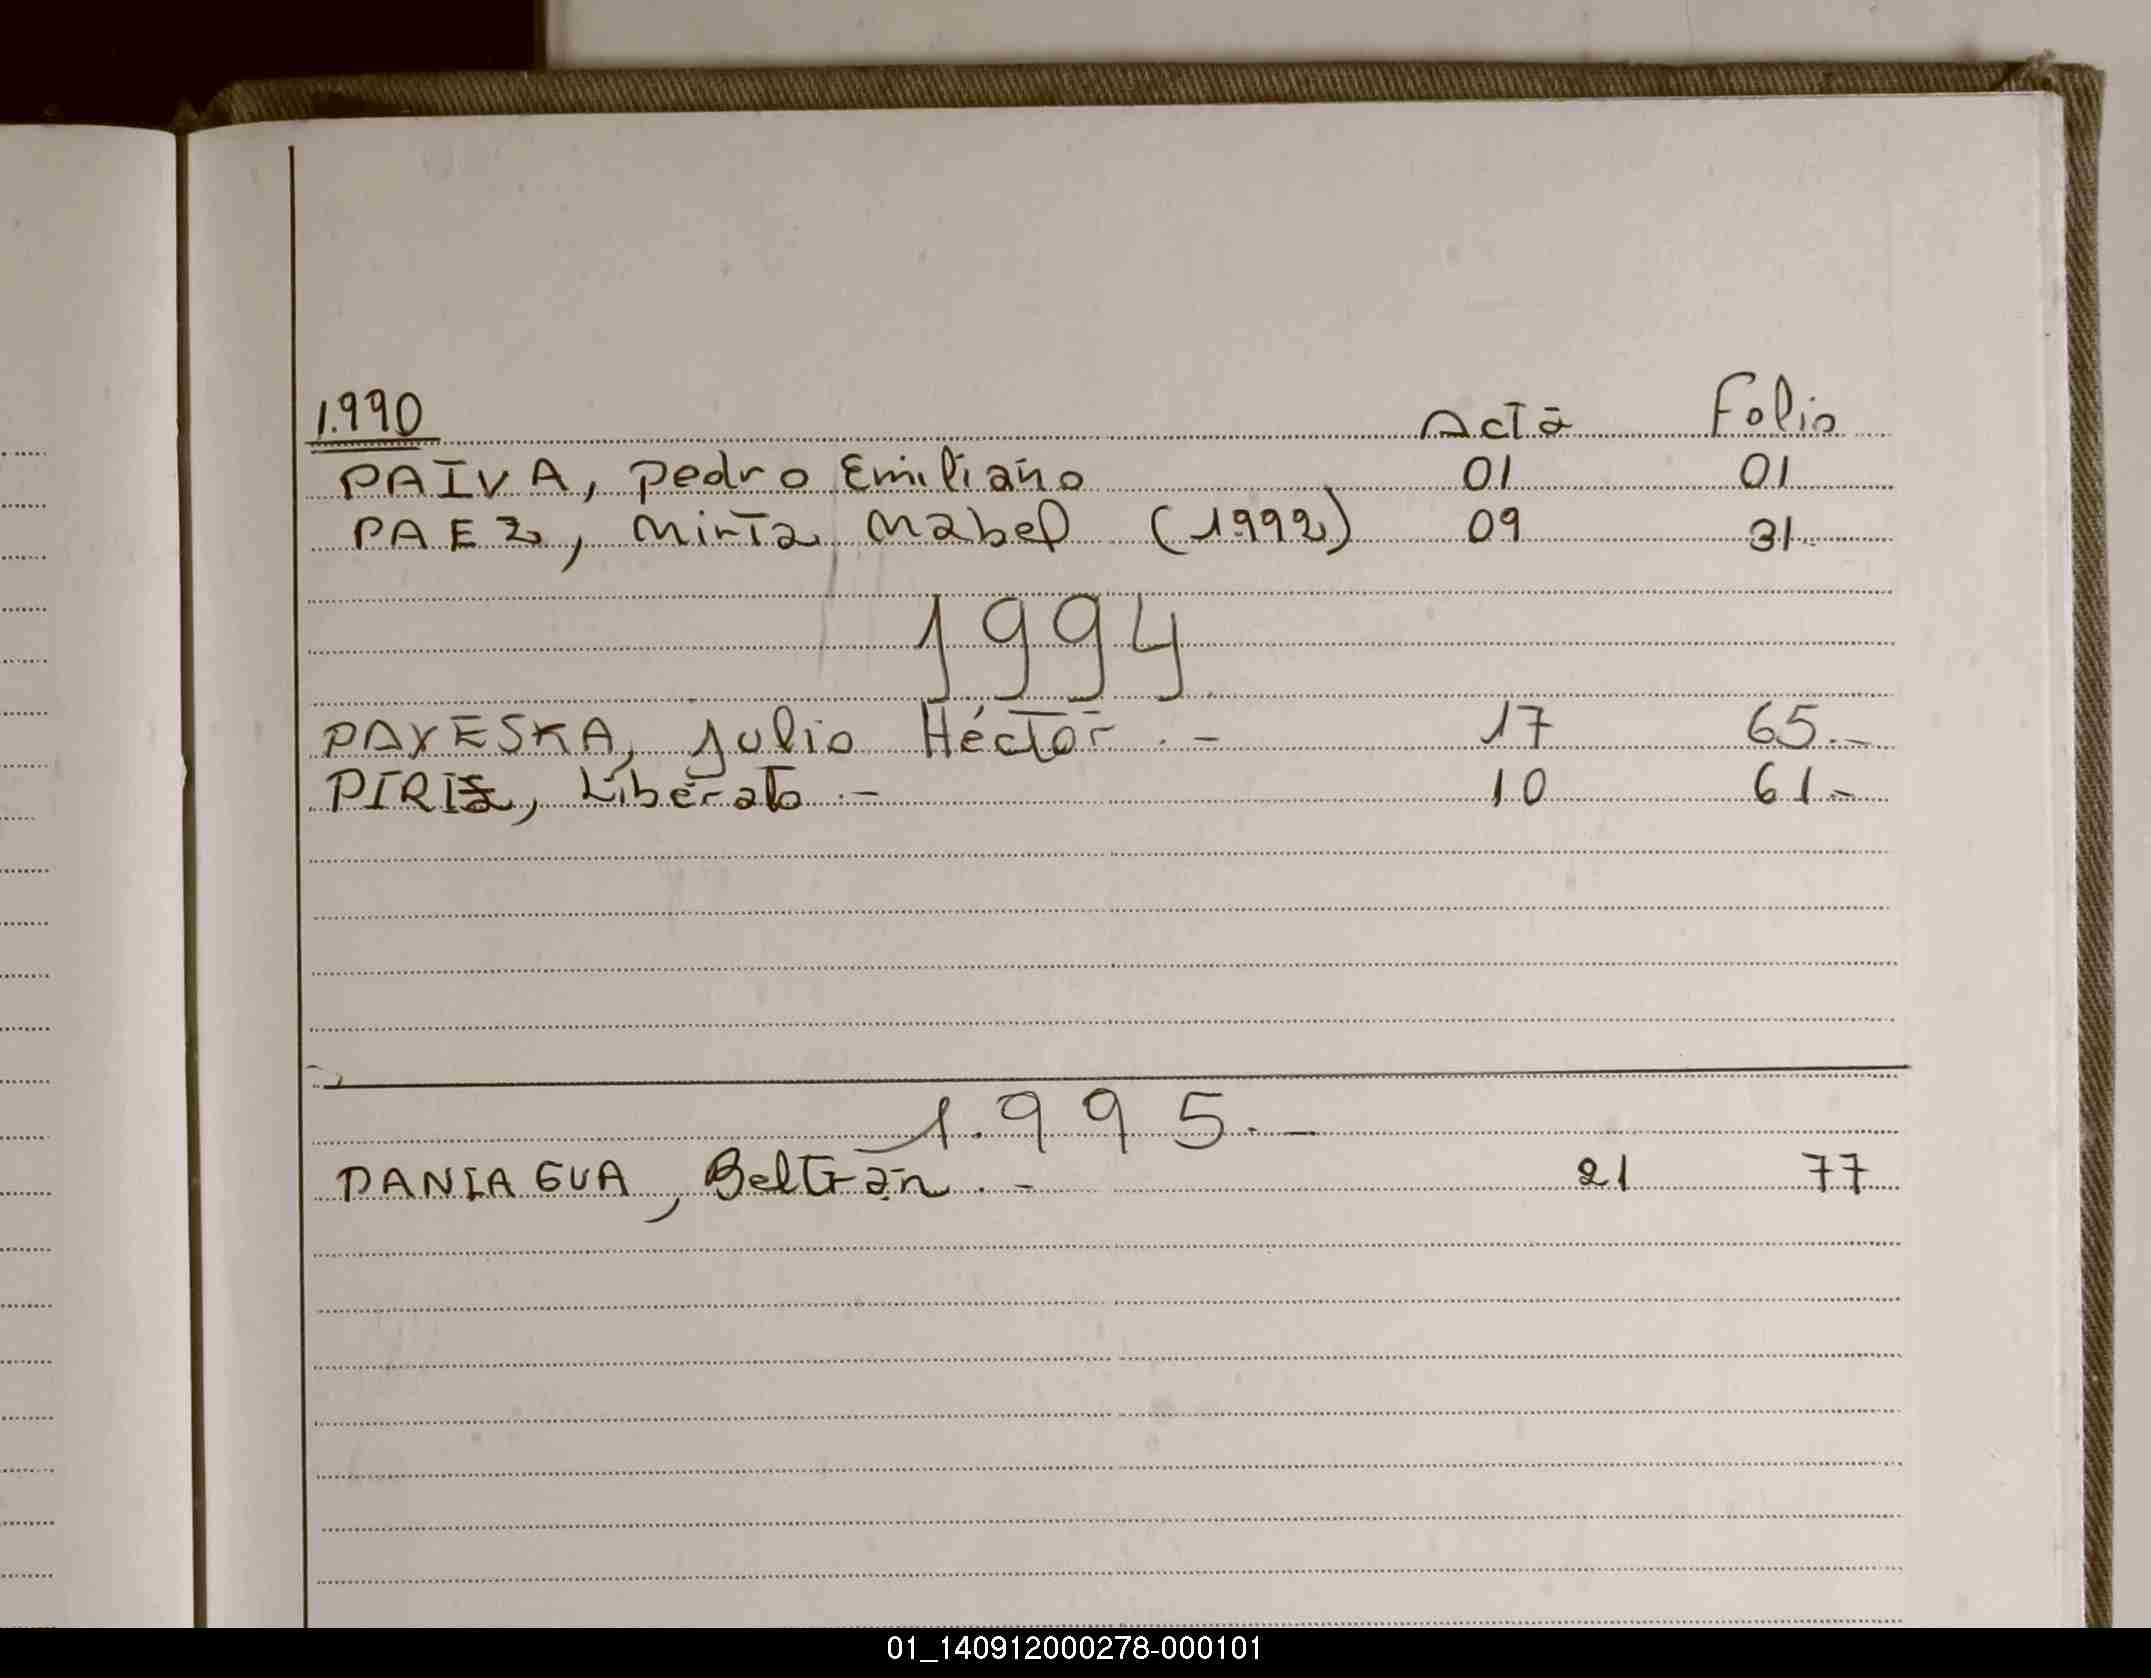 1.990 Acta Folio
PAIVA, Pedro Emiliano 01 01
PAEZ, Mirta Mabel (1.992) 09 31.
1994
PAYESKA, Julio Héctor.- 17 65.-
PIRIZ, Liberato.- 10 61.-
1.995.-
PANIAGUA, Beltrán.- 21 77
01_140912000278-000101